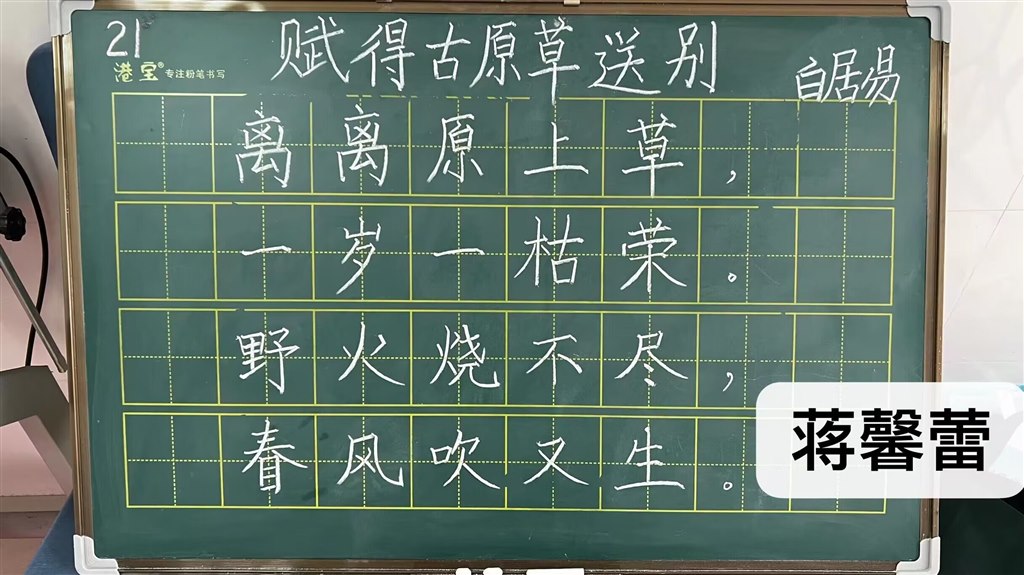 21
港宝® 专注粉笔书写
赋得古原草送别
白居易
离离原上草，
一岁一枯荣。
野火烧不尽，
春风吹又生。
蒋馨蕾